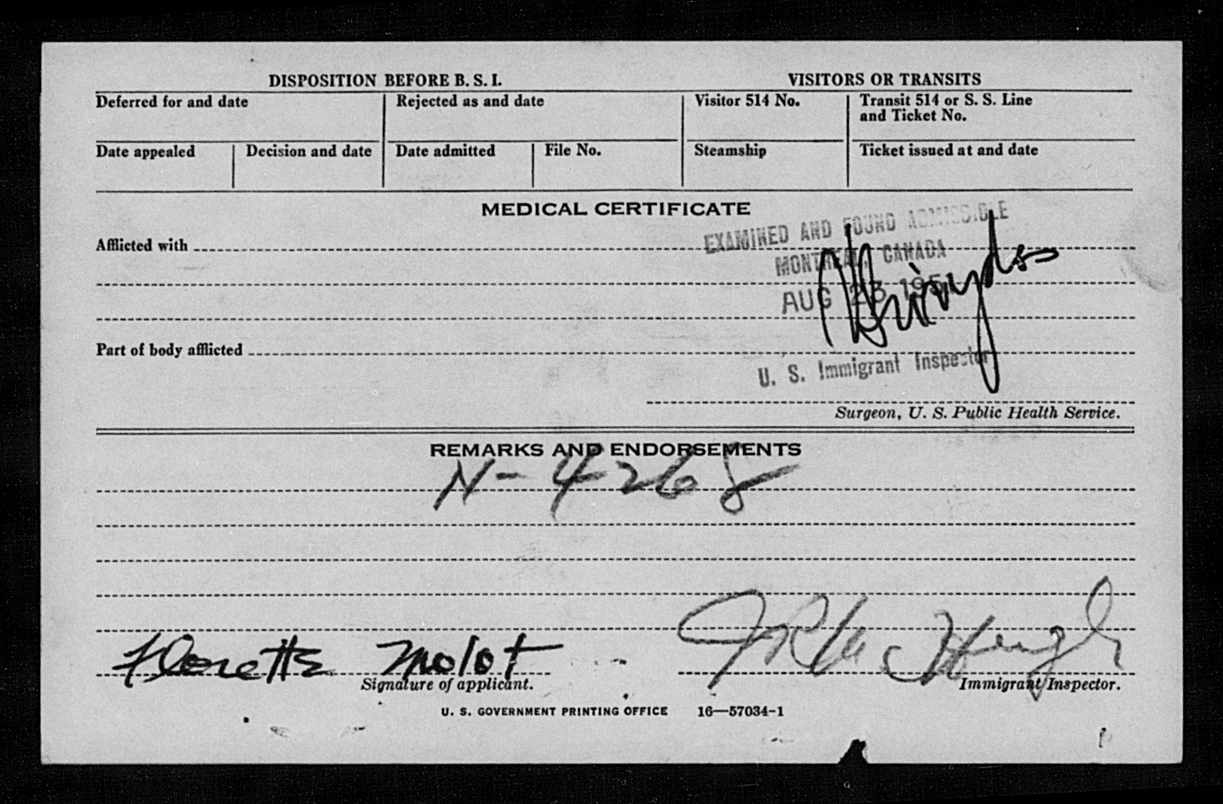 DISPOSITION BEFORE B. S. I. VISITORS OR TRANSITS
Deferred for and date Rejected as and date Visitor 514 No. Transit 514 or S. S. Line and Ticket No.
Date appealed Decision and date Date admitted File No. Steamship Ticket issued at and date
MEDICAL CERTIFICATE
EXAMINED AND FOUND ADMISSIBLE
Afflicted with
MONTREAL, CANADA
AUG 23
Part of body afflicted
U. S. Immigrant Inspector
Surgeon, U. S. Public Health Service.
REMARKS AND ENDORSEMENTS
N-4268
Florette Molot
Signature of applicant. Immigrant Inspector.
U. S. GOVERNMENT PRINTING OFFICE 16—57034-1